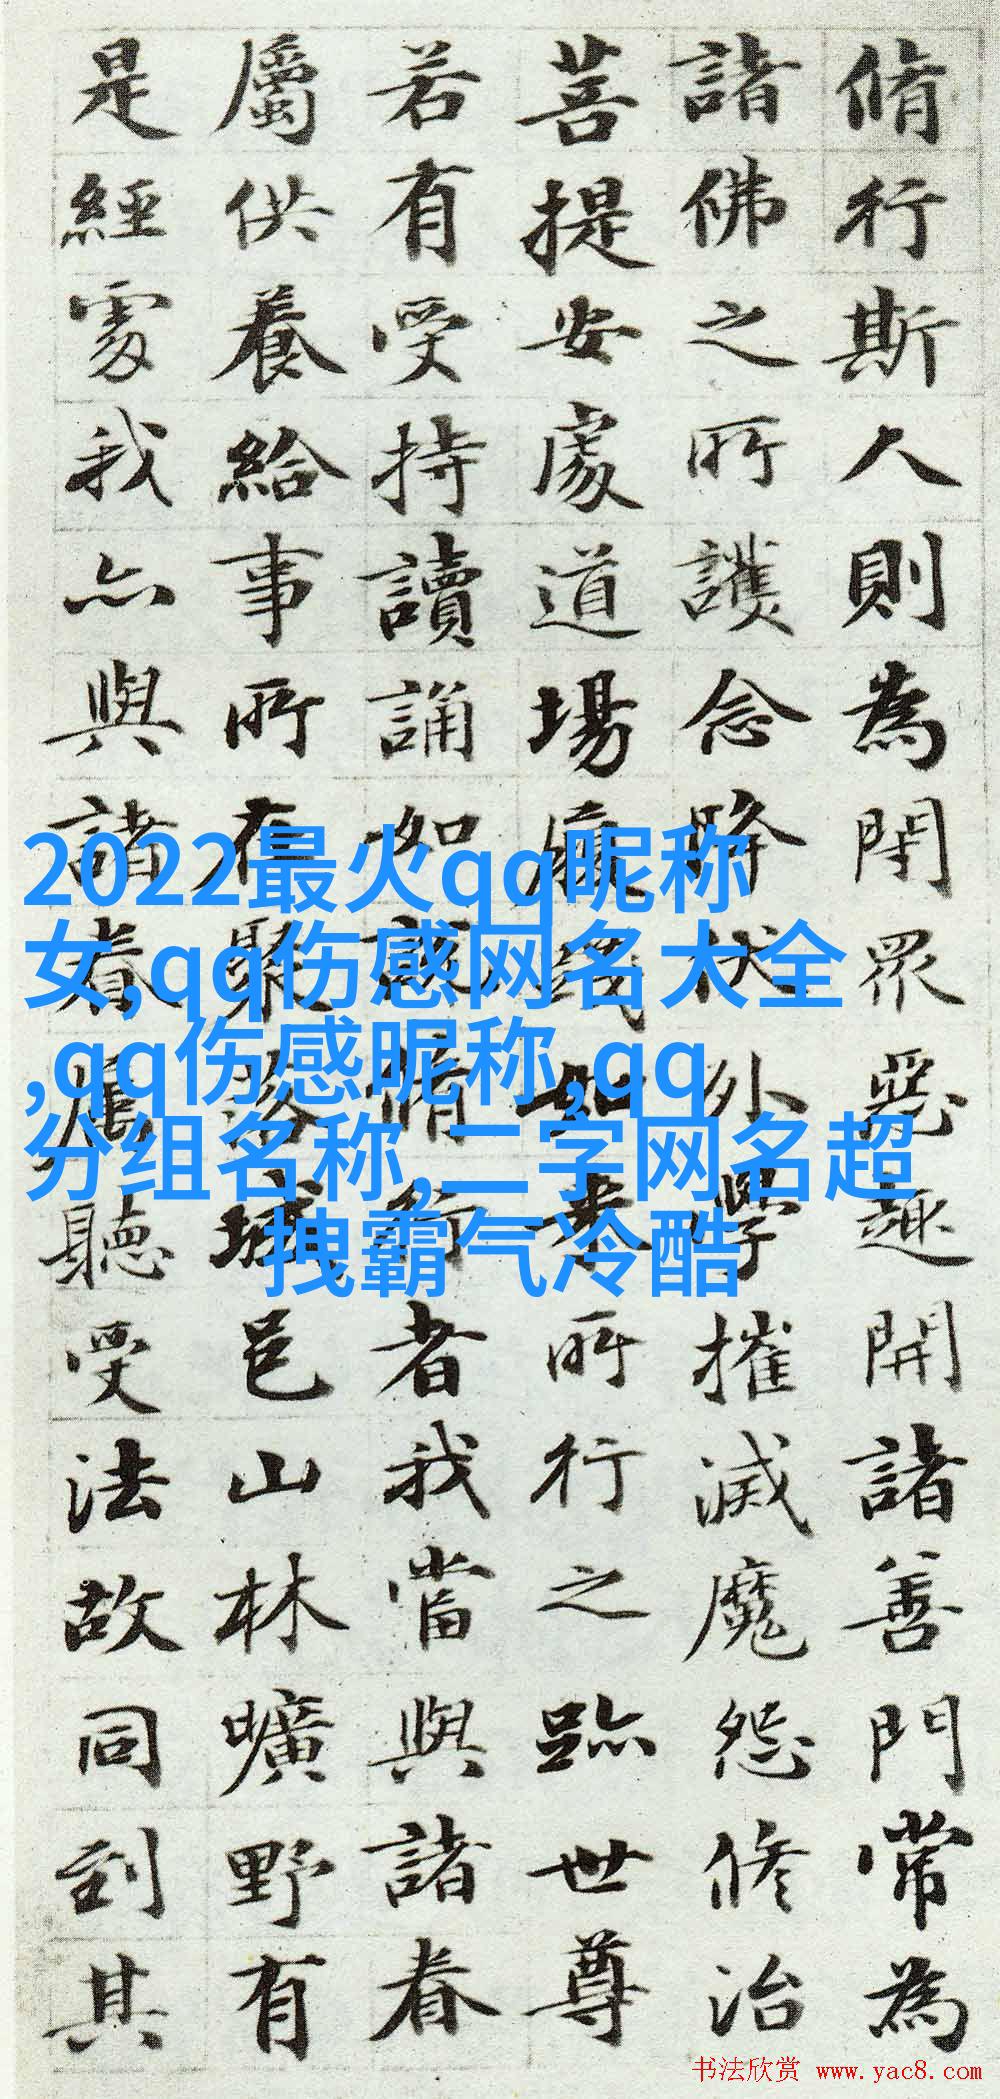 脩行斯人則為閉眾惡趣開諸善門常為
諸佛之所護念降伏外學摧滅魔怨修治
菩提安處道場履踐如來所行之跡世尊
若有受持讀誦如說脩行者我當與諸眷
屬供養給事所有聚落城邑山林曠野有
是經處我亦與諸眷屬聽受法故同到其
2022最火qq昵称
女,qq伤感网名大全
,qq伤感昵称,qq
分组名称,二字网名超
拽霸气冷酷
书法欣赏 www.yac8.com